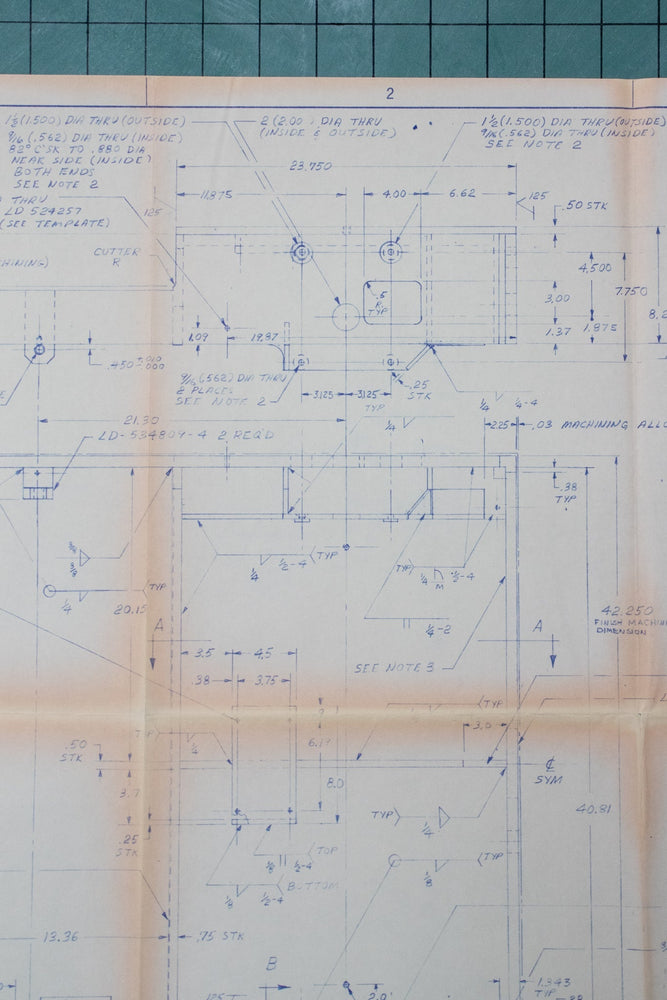 2
1½(1.500) DIA THRU (OUTSIDE)
9/16 (.562) DIA THRU (INSIDE)
82° C'SK TO .880 DIA
NEAR SIDE (INSIDE)
BOTH ENDS
SEE NOTE 2
2 (2.00 ) DIA THRU
(INSIDE & OUTSIDE)
1½(1.500) DIA THRU(OUTSIDE)
9/16(.562) DIA THRU(INSIDE)
SEE NOTE 2
23.750
11.875
4.00
6.62
125
.50 STK
THRU
LD 524257
(SEE TEMPLATE)
125
CUTTER
R
4.500
.5
R
TYP
3.00
7.750
8.2
1.09
19.87
1.37
1.875
.450 +.010 -.000
9/16(.562) DIA THRU
2 PLACES
SEE NOTE 2
3.125
3.125
.25
STK
TYP
1/4
1/4
1/4-4
21.30
2.25
.03 MACHINING ALLO
LD-534809-4 2 REQ'D
.38
TYP
1/4
1/2-4
TYP
TYP
1/4
M
1/2-4
TYP
1/4
20.15
1/4-2
42.250
FINISH MACHIN
DIMENSION
A
A
3.5
4.5
SEE NOTE 3
.38
3.75
TYP
TYP
1/4
3.0
.50
STK
8.0
℄
SYM
3.7
40.81
TYP
1/4
.25
STK
TOP
1/8
1/2-4
TYP
1/8
BOTTOM
1/8
1/2-4
13.36
.75 STK
B
1.343
TYP